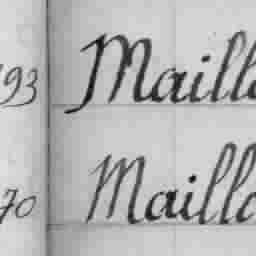 93 Maill
70 Maill